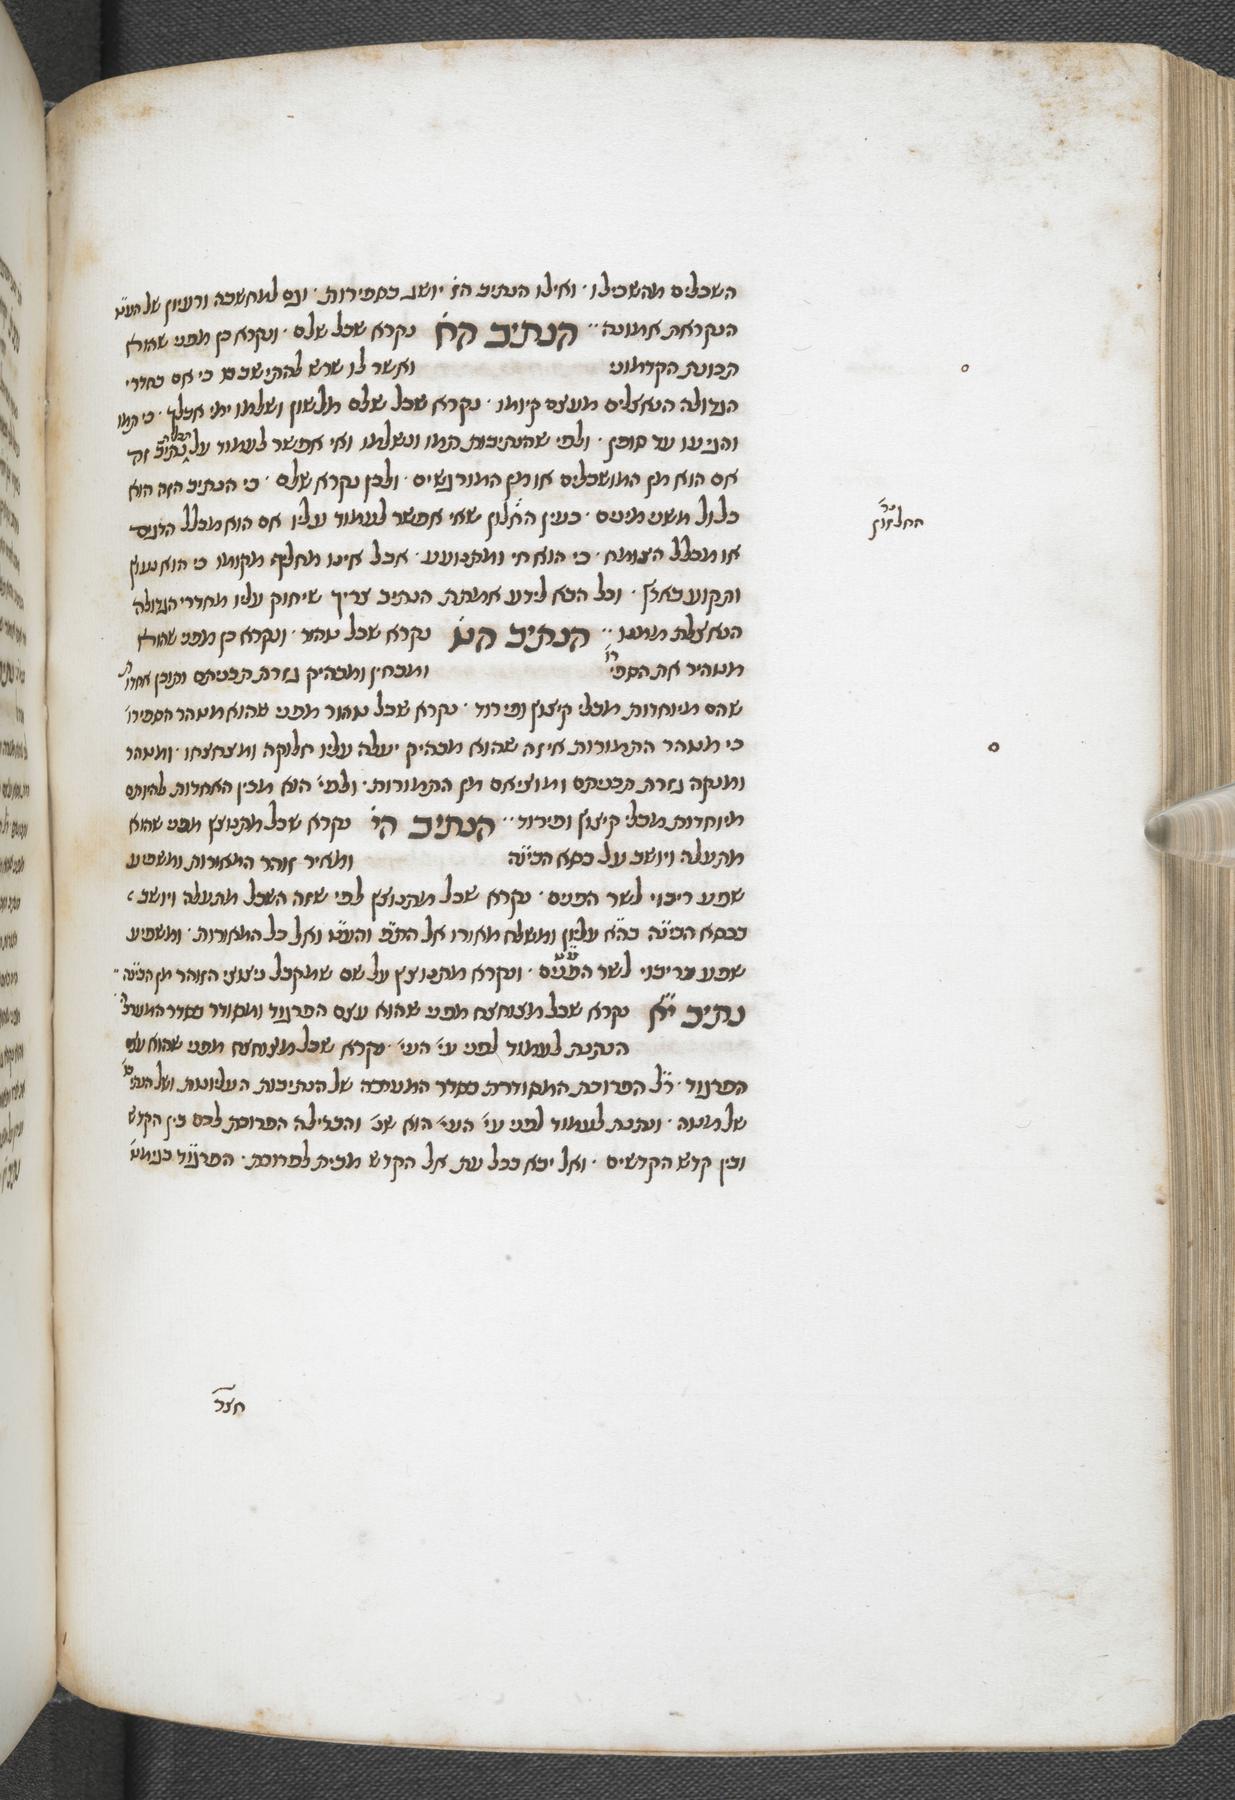 השכלים מהשכילו · ואילו הנתיב הז׳ יושג בספירות · וגם למחשבה ורעיון של העי״ט
הנקראת אמונה ·· הנתיב הח׳ נקרא שכל שלם · ונקרא כן מפני שהוא
תכונת הקדמוני ואשר לו שרש להתישב בו כי אם בחדרי
הגדולה הנאצלים מעצם קיומו · נקרא שכל שלם מלשון ושלמו ימי אבלך · כי תמו
והגיעו עד סופן · ולפי שהנתיבות תמו ונשלמו ואי אפשר לעמוד על נתיב זה
אם הוא מן המושכלים או מן המורגשים · ולכן נקרא שלם · כי הנתיב הזה הוא
כלול משני מינים · כעין החלזון שאי אפשר לעמוד עליו אם הוא מכלל הדגים
או מכלל הצומח · כי הוא חי ומתנועע · אבל אינו מחליף מקומו כי הוא נעוץ
ותקוע בארץ · וכל הבא לידע אמתת הנתיב צריך שיחזק עליו מחדרי הגדולה
הנאצלת ממנו ·· הנתיב הט׳ נקרא שכל טהור · ונקרא כן מפני שהוא
מטהיר את הספי׳ ומבחין ומבהיק גזרת תבניתם ותוכן אחדות
שהם מיוחדות מבלי קיצוץ ופירוד · נקרא שכל טהור מפני שהוא מטהר הספירו׳
כי מטהר התמורות איזה שהוא מבהיק יעלה עליו חלוקה ומצחצחו · ומטהר
ומנקה גזרת תבניתם ומוציאם מן התמורות · ולפי׳ הוא מבין האחדות להיותם
מיוחדות מבלי קיצוץ ופירוד ·· הנתיב הי׳ נקרא שכל מתנוצץ מפני שהוא
מתעלה ויושב על כסא הבינה ומאיר זוהר המאורות ומשפיע
שפע ריבוי לשר הפנים · נקרא שכל מתנוצץ לפי שזה השכל מתעלה ויושב
בכסא הבינה בה״א עליון ומשלח מאורו אל הת״ת והעי״ט ואל כל המאורות · ומשפיע
שפע בריבוי לשר הפנים · ונקרא מתנוצץ על שם שמקבל ניצוצי הזוהר מן הבינה ··
נתיב י״א נקרא שכל מצוחצח מפני שהוא עצם הפרגוד ומסודר בסדר המערכ׳
הנתנת לעמוד לפני עי׳ העי׳ · נקרא שכל מצוחצח מפני שהוא עצם
הפרגוד · ר״ל הפרוכת המסודרת בסדר המערכה של הנתיבות העליונות ושל הנתי׳
של מטה · ונתנת לעמוד לפני עי׳ העי׳ הוא שנ׳ והבדילה הפרוכת לכם בין הקדש
ובין קדש הקדשים · ואל יבא בכל עת אל הקדש מבית לפרוכת · הפרגוד בגימט׳
החלזון
חצר